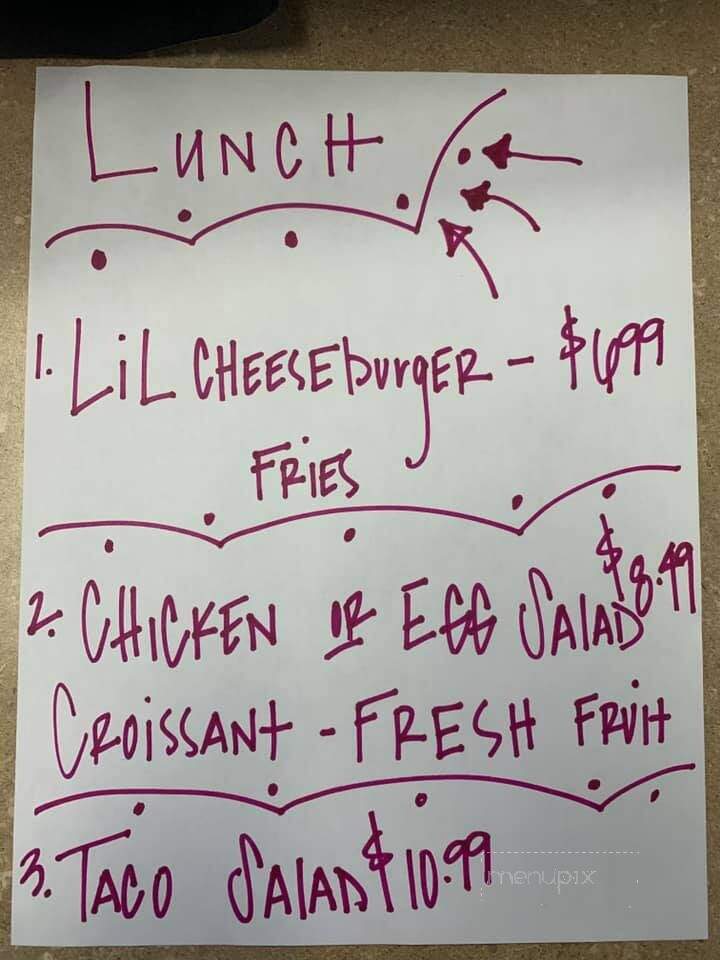 LUNCH
1. LiL CHEESEburgER - $699
FRiES
2. CHICKEN OR EGG SALAD $8.49
CROiSSANt - FRESH FRUit
3. TACO SALAD $10.99
menupix